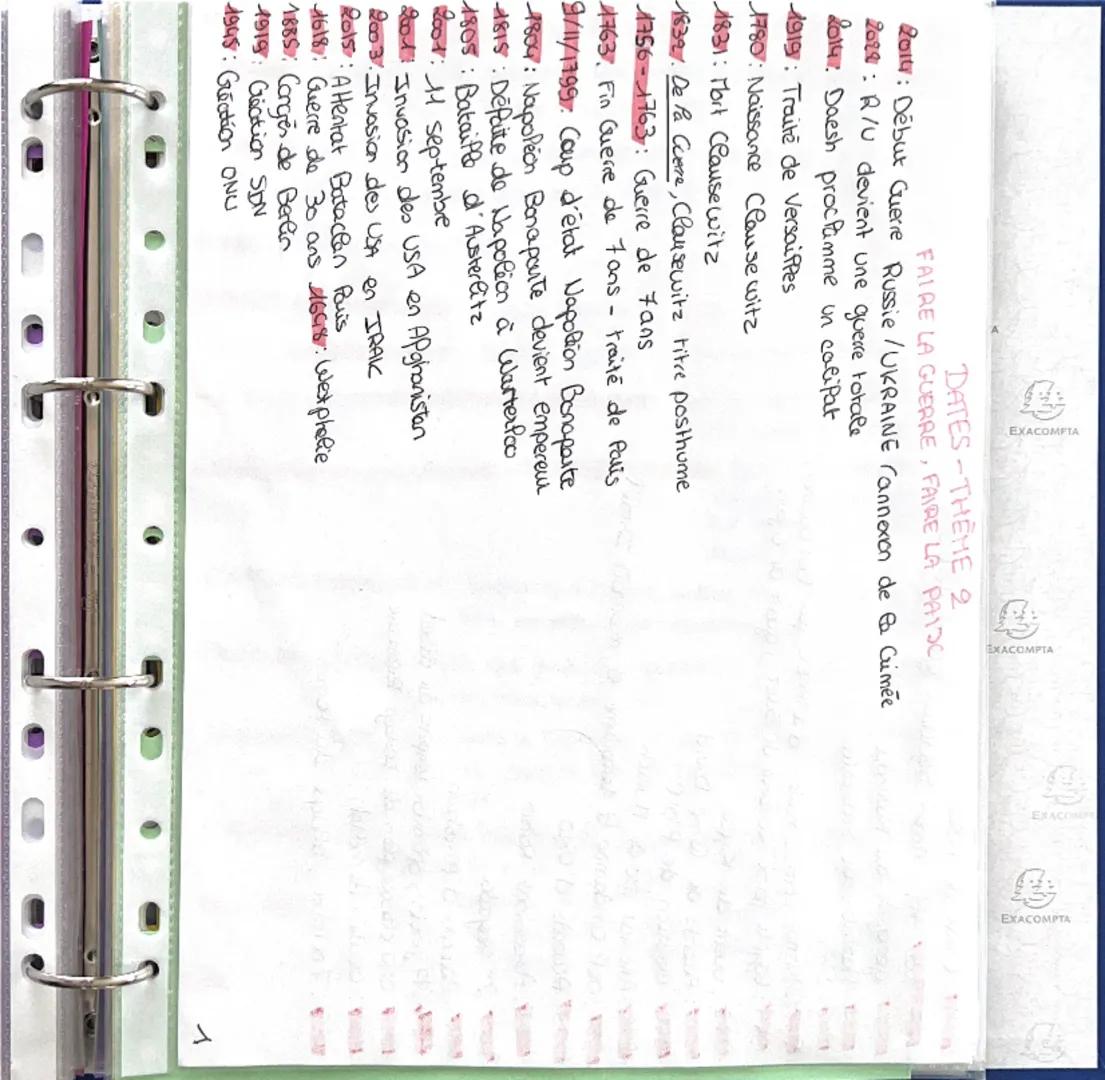 DATES - THÈME 2
FAIRE LA GUERRE, FAIRE LA PAIX
2014 : Début Guerre Russie / UKRAINE (annexion de la Crimée
2022 : R/U devient une guerre totale
2014 : Daesh proclamme un califat
1919 : Traité de Versailles
1780 : Naissance Clausewitz
1831 : Mort Clausewitz
1832 De la Guerre, Clausewitz titre posthume
1756-1763 : Guerre de 7 ans
1763 : Fin Guerre de 7 ans - traité de Paris
9/11/1799 : Coup d'état Napoléon Bonaparte
1804 : Napoléon Bonaparte devient empereur
1815 : Défaite de Napoléon à Waterloo
1805 : Bataille d'Austerlitz
2001 : 11 septembre
2001 : Invasion des USA en Afghanistan
2003 : Invasion des USA en IRAK
2015 : Attentat Bataclan Paris
1618 : Guerre de 30 ans 1648 : Westphalie
1885 : Congrès de Berlin
1919 : Création SDN
1945 : Création ONU
1
EXACOMPTA
EXACOMPTA
EXACOMPTA
EXACOMPTA